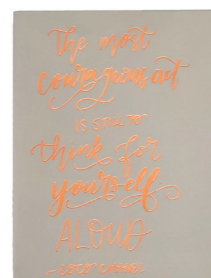 The most
courageous act
IS STILL TO
think for
yourself
ALOUD
- COCO CHANEL